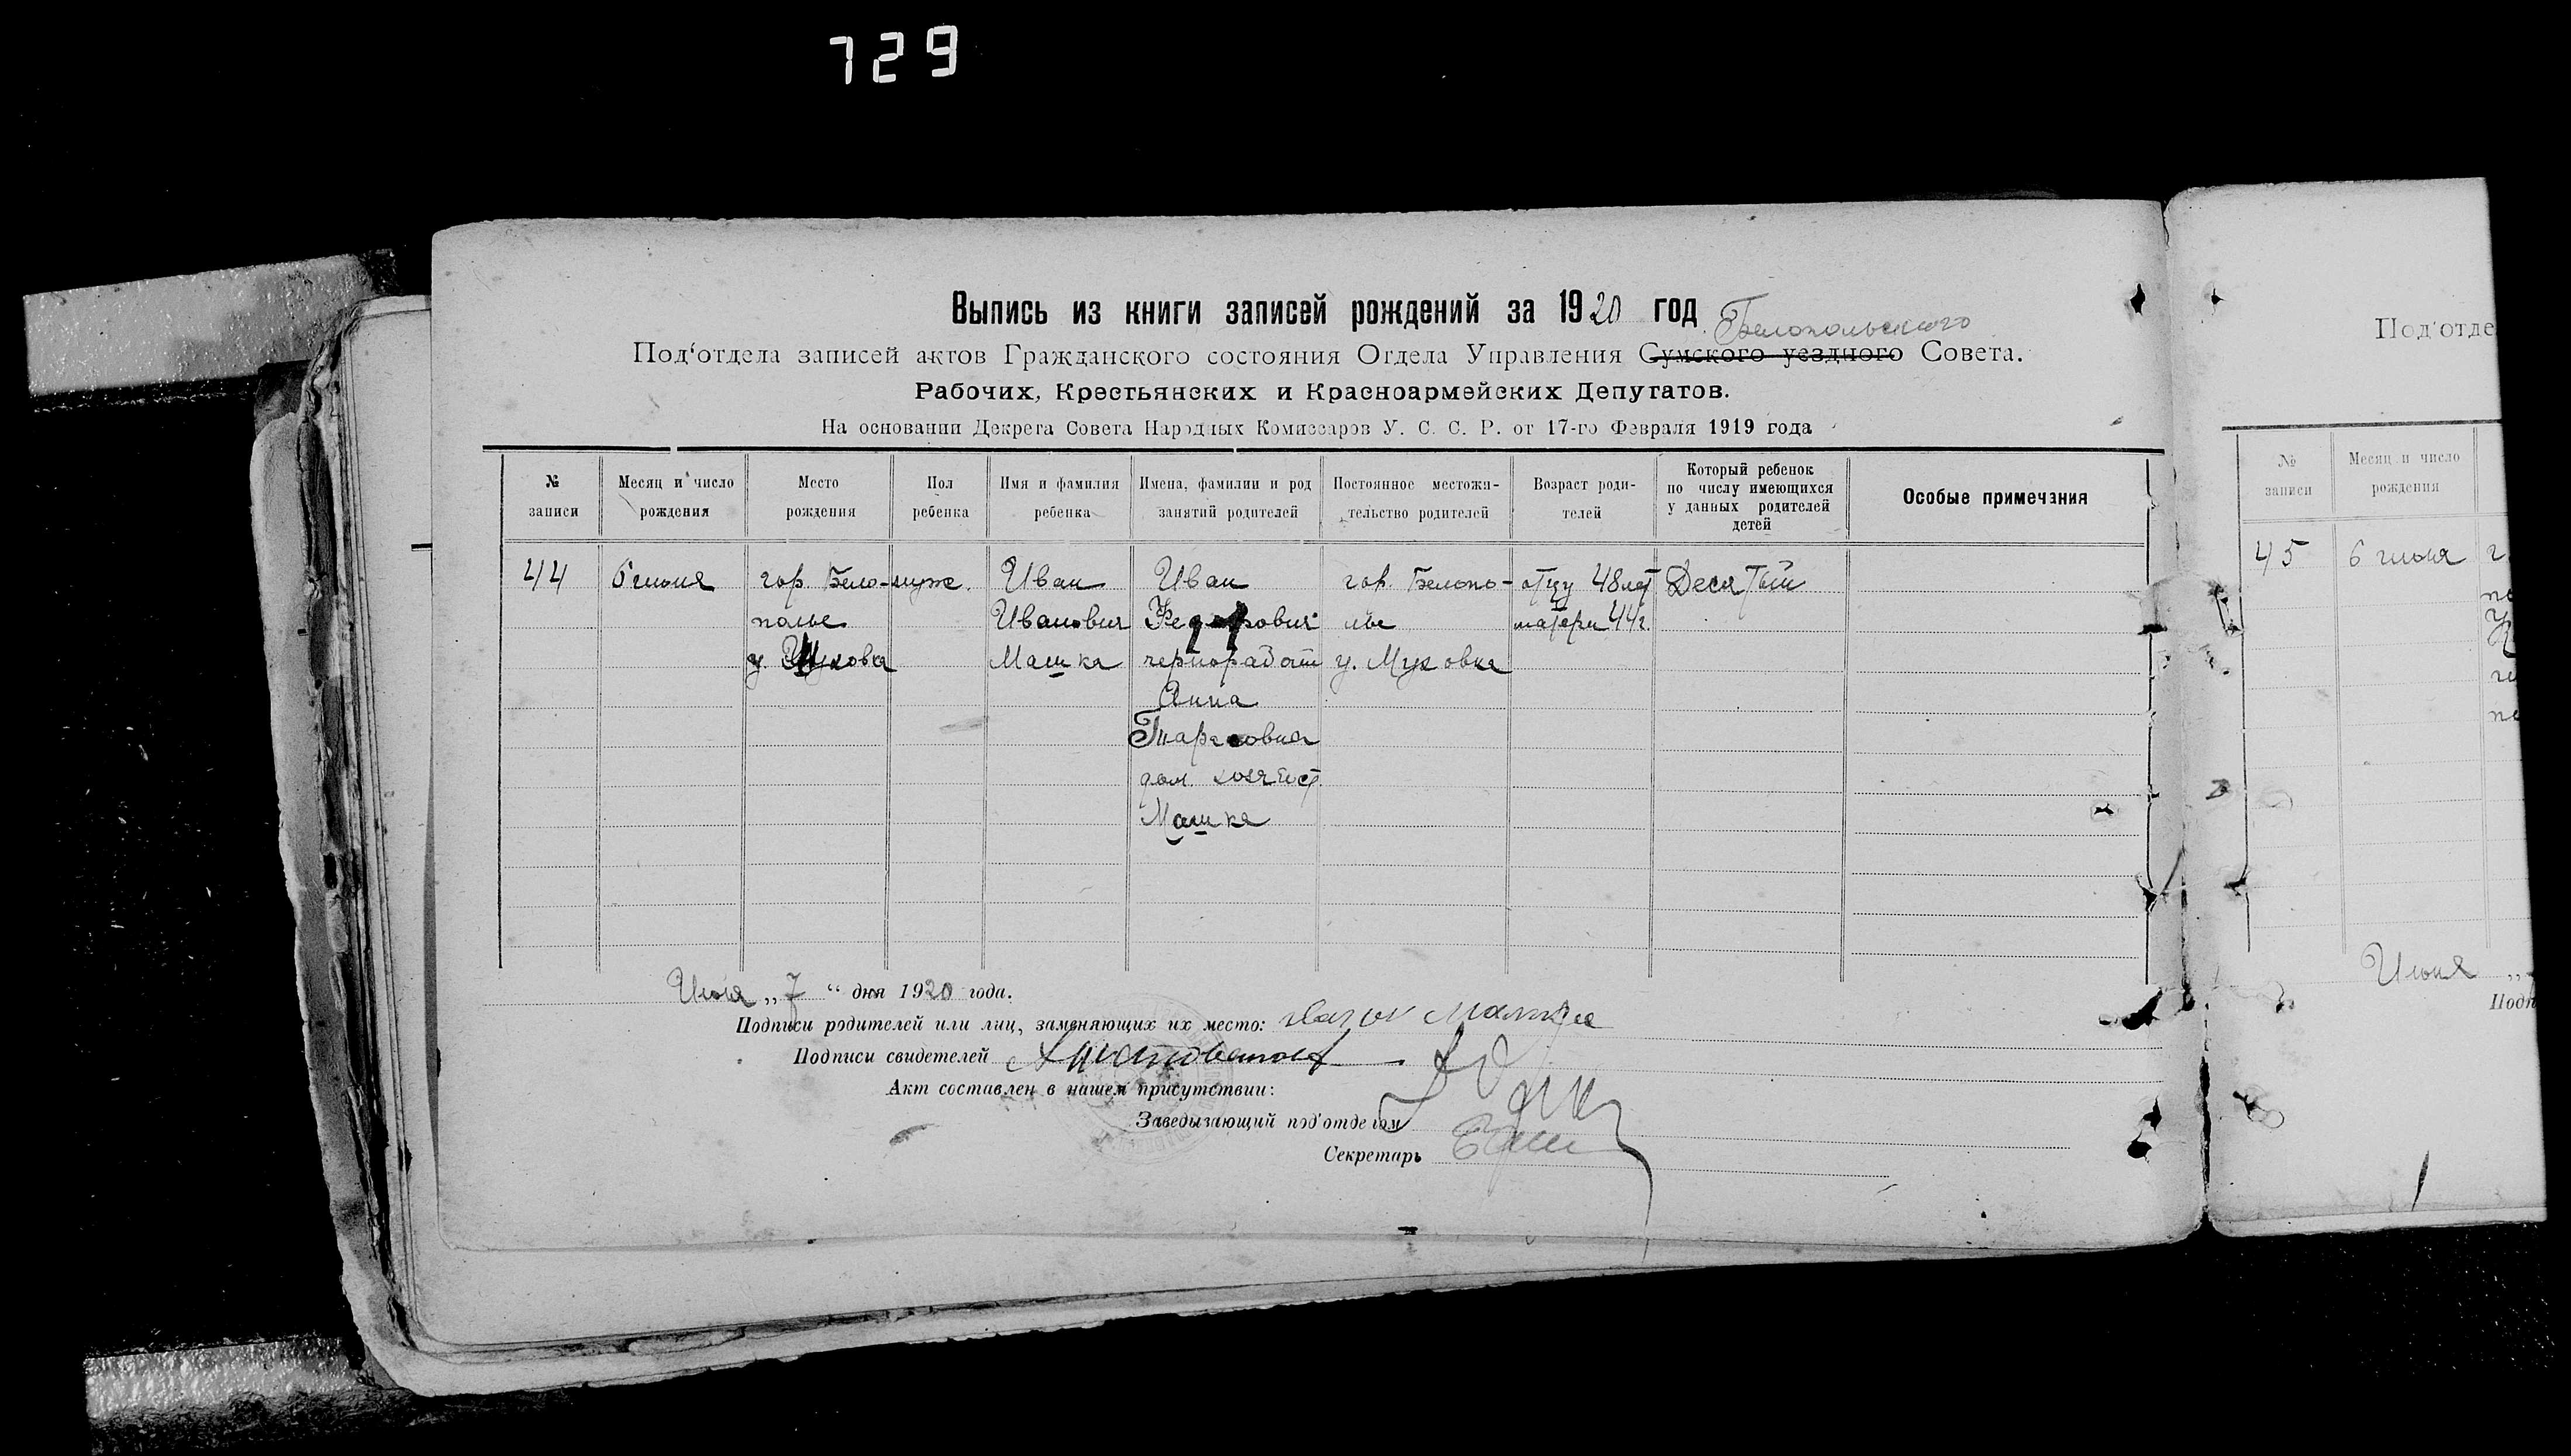 729
Выпись из книги записей рождений за 1920 год
Белопольского
Под‘отдела записей актов Гражданского состояния Отдела Управления Сумского уездного Совета.
Рабочих, Крестьянских и Красноармейских Депутатов.
На основании Декрета Совета Народных Комиссаров У. С. С. Р. от 17-го Февраля 1919 года
№ записи
Месяц и число рождения
Место рождения
Пол ребенка
Имя и фамилия ребенка
Имена, фамилии и род занятий родителей
Постоянное местожи-
тельство родителей
Возраст роди-
телей
Который ребенок
по числу имеющихся
у данных родителей
детей
Особые примечания
44
6 июня
гор. Бело-
полье
муж.
Иван
Иванович
Машка
Иван
Федорович
чернорабоч
Анна
Тарасовна
дом. хозяйст.
Машка
гор. Белопо-
лье
у. Муховка
отцу 48 лет
матери 44 г.
Десятый
Июня „ 7 “ дня 1920 года.
Подписи родителей или лиц, заменяющих их место:
Подписи свидетелей
Акт составлен в нашем присутствии:
Заведывающий под‘отделом
Секретарь
Под‘отде
№ записи
Месяц и число рождения
45
6 июня
Июня „
Подп